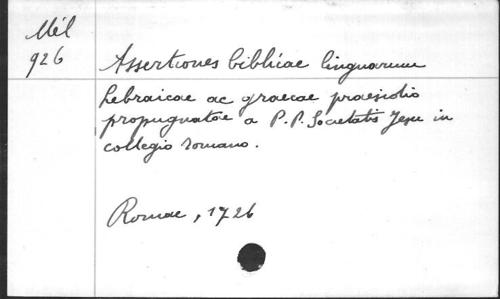 Mél
926
Assertiones biblicae linguarum
hebraicae ac graecae praesidio
propugnatae a P.P. Societatis Jesu in
collegio romano.
Romae, 1726